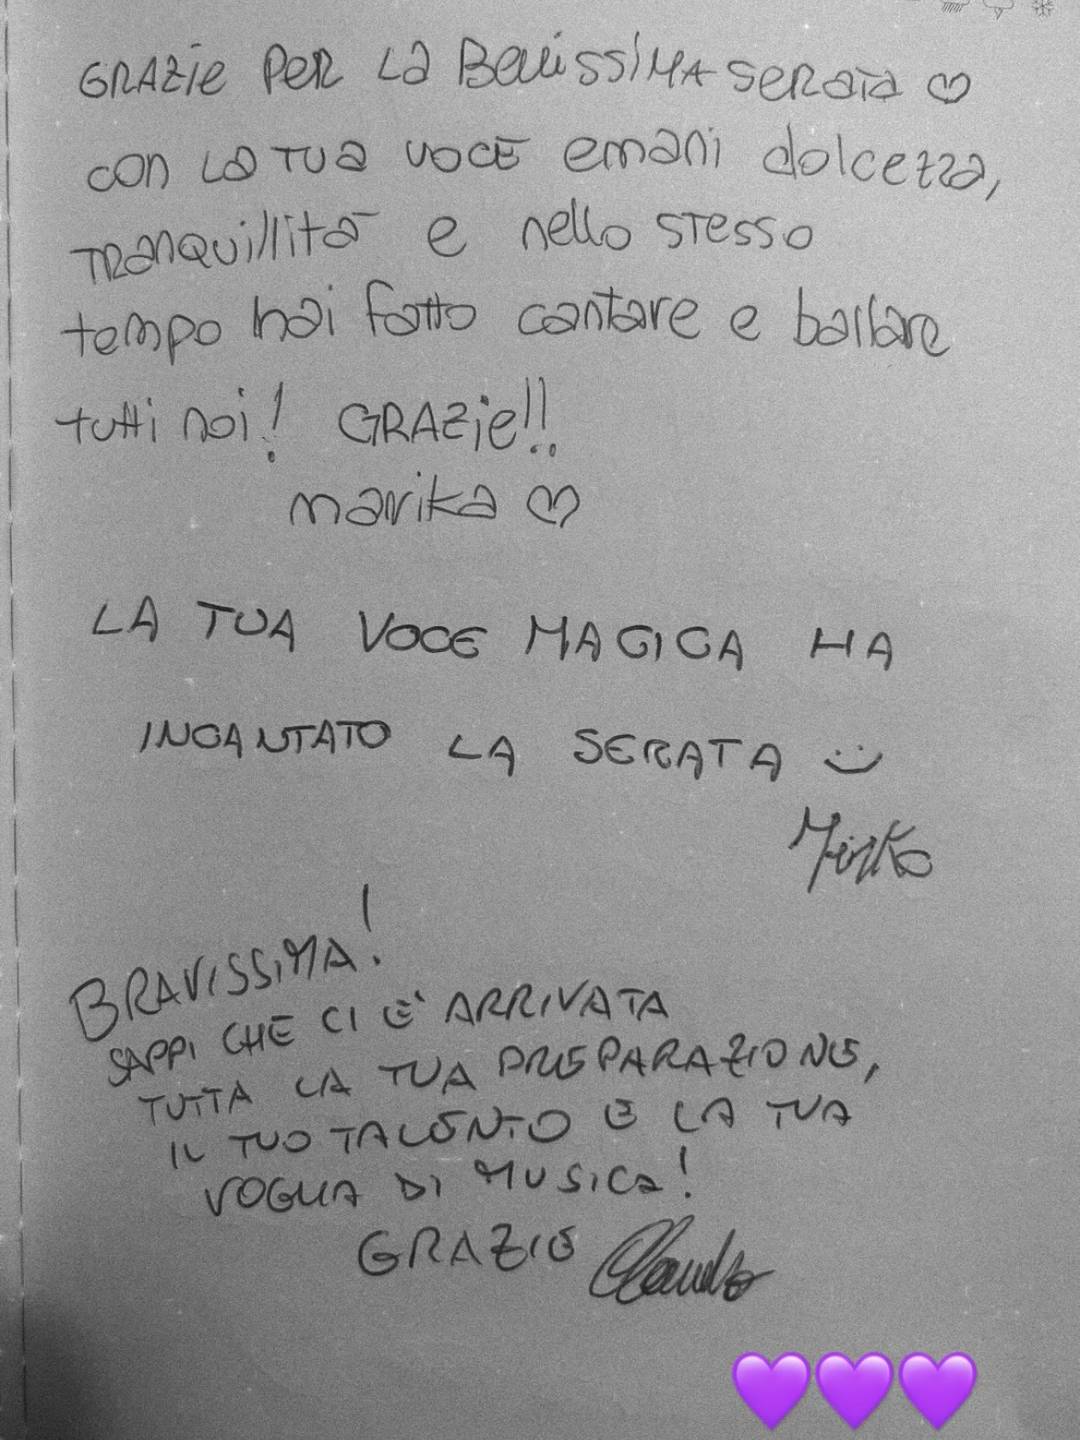 GRAZIE PER LA BELLISSIMA SERATA ♡
CON LA TUA VOCE emani dolcezza,
TRANQUILLITÀ e nello STESSO
tempo hai fatto cantare e ballare
tutti noi! GRAZIE!!
marika ♡
LA TUA VOCE MAGICA HA
INCANTATO LA SERATA :)
Mirko
BRAVISSIMA!
SAPPI CHE CI È ARRIVATA
TUTTA LA TUA PREPARAZIONE,
IL TUO TALENTO E LA TUA
VOGLIA DI MUSICA!
GRAZIE Claudio
💜💜💜